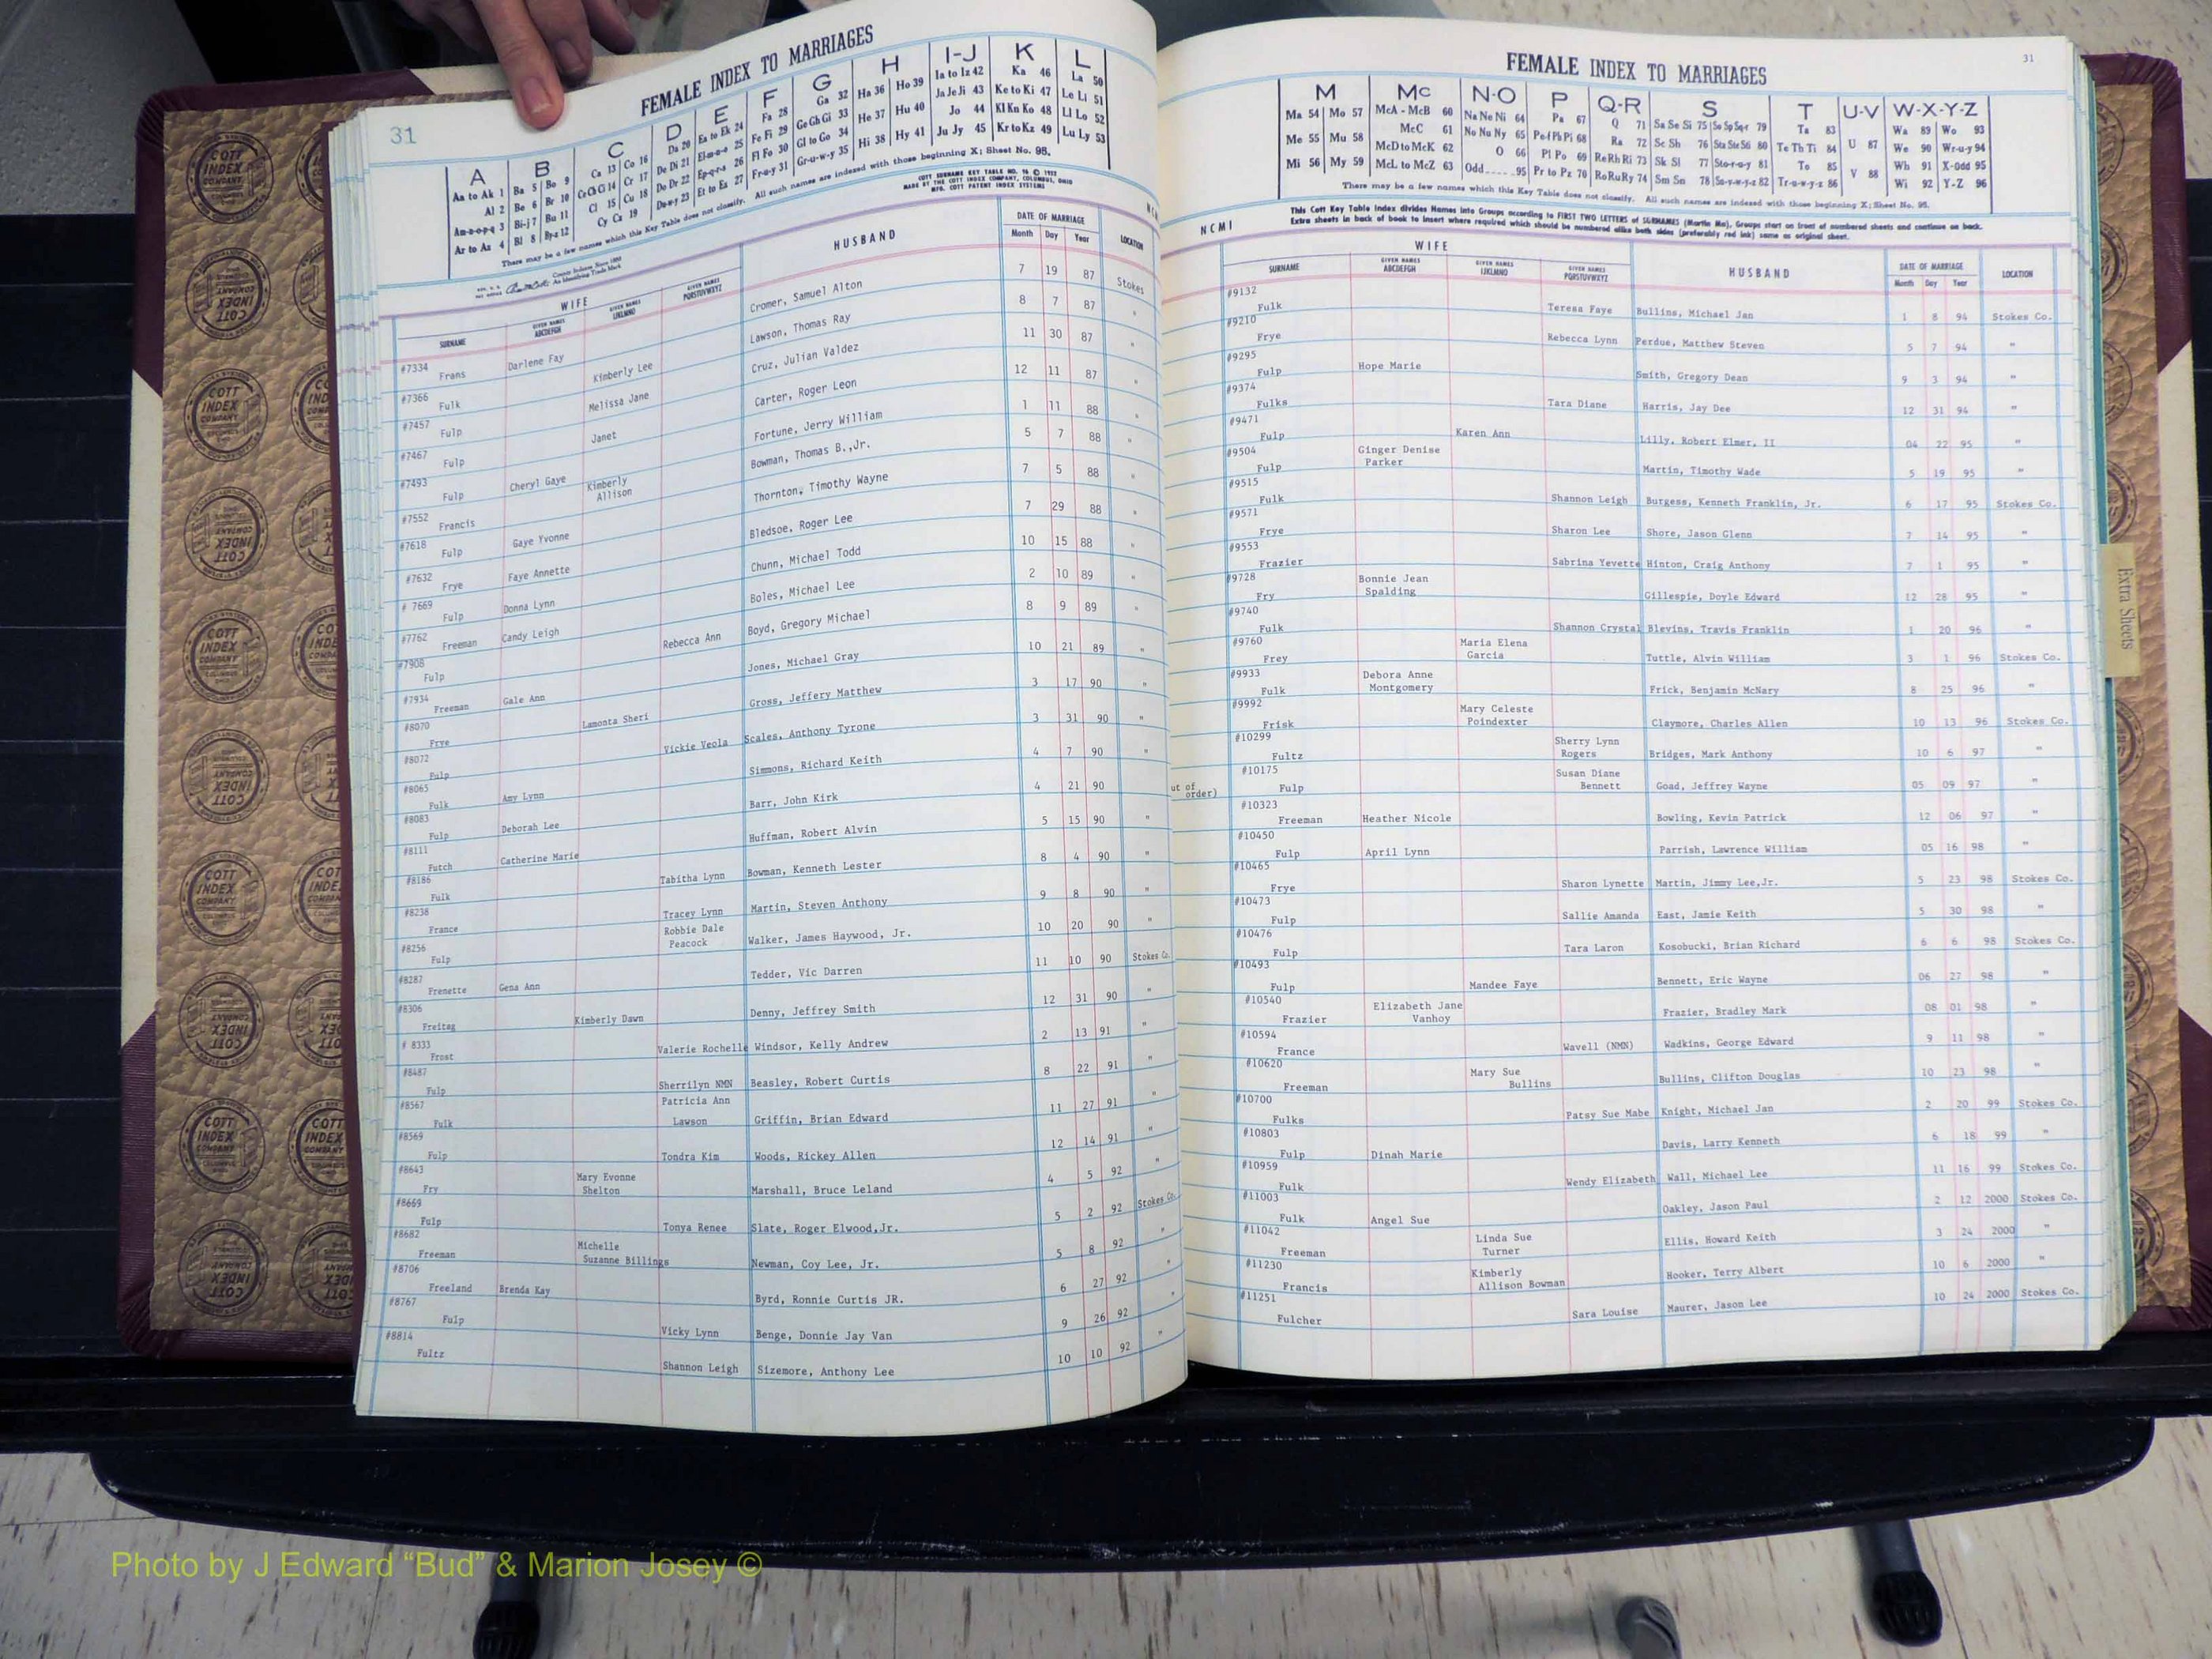 31
FEMALE INDEX TO MARRIAGES
A B C D E F G H I-J K L
Aa to Ak 1 Ba 5 Bo 9 Ca 13 Co 16 Da 20 Ea to Ek 24 Fa 28 Ga 32 Ha 36 Ho 39 Ia to Iz 42 Ka 46 La 50
Al 2 Be 6 Br 10 Ce Ch Ci 14 Cr 17 De Di 21 El-m-n-o 25 Fe Fi 29 Ge Gh Gi 33 He 37 Hu 40 Ja Je Ji 43 Ke to Ki 47 Le Li 51
Am-n-o-p-q 3 Bi-j 7 Bu 11 Cl 15 Cu 18 Do Dr 22 Ep-q-r-s 26 Fl Fo 30 Gl to Go 34 Hi 38 Hy 41 Jo 44 Kl Kn Ko 48 Ll Lo 52
Ar to Az 4 Bl 8 By-z 12 Cy Cz 19 Du-w-y 23 Et to Ez 27 Fr-u-y 31 Gr-u-w-y 35 Ju Jy 45 Kr to Kz 49 Lu Ly 53
There may be a few names which this Key Table does not classify. All such names are indexed with those beginning X; Sheet No. 95.
COTT SURNAME KEY TABLE NO.
MADE BY THE COTT INDEX COMPANY, COLUMBUS, OHIO
MFG. COTT PATENT INDEX SYSTEMS
County Indexes Since 1888
An Identifying Trade Mark
WIFE HUSBAND DATE OF MARRIAGE LOCATION
SURNAME GIVEN NAMES ABCDEFGH GIVEN NAMES IJKLMNO GIVEN NAMES PQRSTUVWXYZ Month Day Year
#7334 Frans Darlene Fay Cromer, Samuel Alton 7 19 87 Stokes
#7366 Fulk Kimberly Lee Lawson, Thomas Ray 8 7 87 "
#7457 Fulp Melissa Jane Cruz, Julian Valdez 11 30 87 "
#7467 Fulp Janet Carter, Roger Leon 12 11 87 "
#7493 Fulp Cheryl Gaye Fortune, Jerry William 1 11 88 "
#7552 Francis Kimberly Allison Bowman, Thomas B.,Jr. 5 7 88 "
#7618 Fulp Gaye Yvonne Thornton, Timothy Wayne 7 5 88 "
#7632 Frye Faye Annette Bledsoe, Roger Lee 7 29 88 "
# 7669 Fulp Donna Lynn Chunn, Michael Todd 10 15 88 "
#7762 Freeman Candy Leigh Boles, Michael Lee 2 10 89 "
#7908 Fulp Rebecca Ann Boyd, Gregory Michael 8 9 89 "
#7934 Freeman Gale Ann Jones, Michael Gray 10 21 89 "
#8070 Frye Lamonta Sheri Gross, Jeffery Matthew 3 17 90 "
#8072 Fulp Vickie Veola Scales, Anthony Tyrone 3 31 90 "
#8065 Fulk Amy Lynn Simmons, Richard Keith 4 7 90 "
#8083 Fulp Deborah Lee Barr, John Kirk 4 21 90
#8111 Futch Catherine Marie Huffman, Robert Alvin 5 15 90 "
#8186 Fulk Tabitha Lynn Bowman, Kenneth Lester 8 4 90 "
#8238 France Tracey Lynn Martin, Steven Anthony 9 8 90 "
#8256 Fulp Robbie Dale Peacock Walker, James Haywood, Jr. 10 20 90 "
#8287 Frenette Gena Ann Tedder, Vic Darren 11 10 90 Stokes Co.
#8306 Freitag Kimberly Dawn Denny, Jeffrey Smith 12 31 90 "
# 8333 Frost Valerie Rochelle Windsor, Kelly Andrew 2 13 91 "
#8487 Fulp Sherrilyn NMN Beasley, Robert Curtis 8 22 91 "
#8567 Fulk Patricia Ann Lawson Griffin, Brian Edward 11 27 91 "
#8569 Fulp Tondra Kim Woods, Rickey Allen 12 14 91 "
#8643 Fry Mary Evonne Shelton Marshall, Bruce Leland 4 5 92 "
#8669 Fulp Tonya Renee Slate, Roger Elwood,Jr. 5 2 92 Stokes Co.
#8682 Freeman Michelle Suzanne Billings Newman, Coy Lee, Jr. 5 8 92 "
#8706 Freeland Brenda Kay Byrd, Ronnie Curtis JR. 6 27 92 "
#8767 Fulp Vicky Lynn Benge, Donnie Jay Van 9 26 92 "
#8814 Fultz Shannon Leigh Sizemore, Anthony Lee 10 10 92 "
FEMALE INDEX TO MARRIAGES
31
M Mc N-O P Q-R S T U-V W-X-Y-Z
Ma 54 Mo 57 McA - McB 60 Na Ne Ni 64 Pa 67 Q 71 Sa Se Si 75 So Sp Sq-r 79 Ta 83 U 87 Wa 89 Wo 93
Me 55 Mu 58 McC 61 No Nu Ny 65 Pe-f Ph Pi 68 Ra 72 Sc Sh 76 Sta Ste S6 80 Te Th Ti 84 We 90 Wr-u-y 94
McD to McK 62 O 66 Pl Po 69 Re Rh Ri 73 Sk Sl 77 Sto-r-u-y 81 To 85 V 88 Wh 91 X-Odd 95
Mi 56 My 59 McL to McZ 63 Odd.....95 Pr to Pz 70 Ro Ru Ry 74 Sm Sn 78 Su-v-w-y-z 82 Tr-u-w-y-z 86 Wi 92 Y-Z 96
There may be a few names which this Key Table does not classify. All such names are indexed with those beginning X; Sheet No. 95.
This Cott Key Table Index divides Names into Groups according to FIRST TWO LETTERS of SURNAMES (Martin Ma), Groups start on front of numbered sheets and continue on back.
Extra sheets in back of book to insert where required which should be numbered alike both sides (preferably red ink) same as original sheet.
NCMI
WIFE HUSBAND DATE OF MARRIAGE LOCATION
SURNAME GIVEN NAMES ABCDEFGH GIVEN NAMES IJKLMNO GIVEN NAMES PQRSTUVWXYZ Month Day Year
#9132 Fulk Teresa Faye Bullins, Michael Jan 1 8 94 Stokes Co.
#9210 Frye Rebecca Lynn Perdue, Matthew Steven 5 7 94 "
#9295 Fulp Hope Marie Smith, Gregory Dean 9 3 94 "
#9374 Fulks Tara Diane Harris, Jay Dee 12 31 94 "
#9471 Fulp Karen Ann Lilly, Robert Elmer, II 04 22 95 "
#9504 Fulp Ginger Denise Parker Martin, Timothy Wade 5 19 95 "
#9515 Fulk Shannon Leigh Burgess, Kenneth Franklin, Jr. 6 17 95 Stokes Co.
#9571 Frye Sharon Lee Shore, Jason Glenn 7 14 95 "
#9553 Frazier Sabrina Yevette Hinton, Craig Anthony 7 1 95 "
#9728 Fry Bonnie Jean Spalding Gillespie, Doyle Edward 12 28 95 "
#9740 Fulk Shannon Crystal Blevins, Travis Franklin 1 20 96 "
#9760 Frey Maria Elena Garcia Tuttle, Alvin William 3 1 96 Stokes Co.
#9933 Fulk Debora Anne Montgomery Frick, Benjamin McNary 8 25 96 "
#9992 Frisk Mary Celeste Poindexter Claymore, Charles Allen 10 13 96 Stokes Co.
#10299 Fultz Sherry Lynn Rogers Bridges, Mark Anthony 10 6 97 "
ut of order) #10175 Fulp Susan Diane Bennett Goad, Jeffrey Wayne 05 09 97 "
#10323 Freeman Heather Nicole Bowling, Kevin Patrick 12 06 97 "
#10450 Fulp April Lynn Parrish, Lawrence William 05 16 98 "
#10465 Frye Sharon Lynette Martin, Jimmy Lee,Jr. 5 23 98 Stokes Co.
#10473 Fulp Sallie Amanda East, Jamie Keith 5 30 98 "
#10476 Fulp Tara Laron Kosobucki, Brian Richard 6 6 98 Stokes Co.
#10493 Fulp Mandee Faye Bennett, Eric Wayne 06 27 98 "
#10540 Frazier Elizabeth Jane Vanhoy Frazier, Bradley Mark 08 01 98 "
#10594 France Wavell (NMN) Wadkins, George Edward 9 11 98 "
#10620 Freeman Mary Sue Bullins Bullins, Clifton Douglas 10 23 98 "
#10700 Fulks Patsy Sue Mabe Knight, Michael Jan 2 20 99 Stokes Co.
#10803 Fulp Dinah Marie Davis, Larry Kenneth 6 18 99 "
#10959 Fulk Wendy Elizabeth Wall, Michael Lee 11 16 99 Stokes Co.
#11003 Fulk Angel Sue Oakley, Jason Paul 2 12 2000 Stokes Co.
#11042 Freeman Linda Sue Turner Ellis, Howard Keith 3 24 2000 "
#11230 Francis Kimberly Allison Bowman Hooker, Terry Albert 10 6 2000 "
#11251 Fulcher Sara Louise Maurer, Jason Lee 10 24 2000 Stokes Co.
Extra Sheets
COTT INDEX COMPANY
Photo by J Edward “Bud” & Marion Josey ©